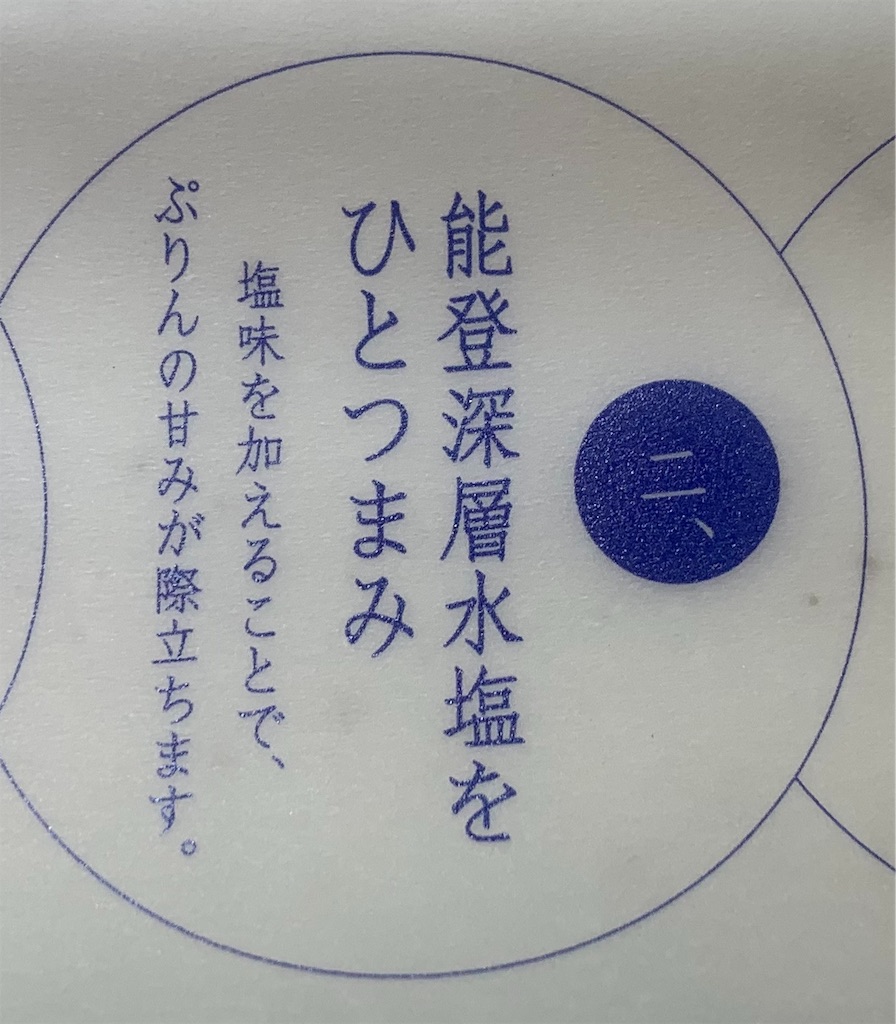 二、
能登深層水塩を
ひとつまみ
塩味を加えることで、
ぷりんの甘みが際立ちます。